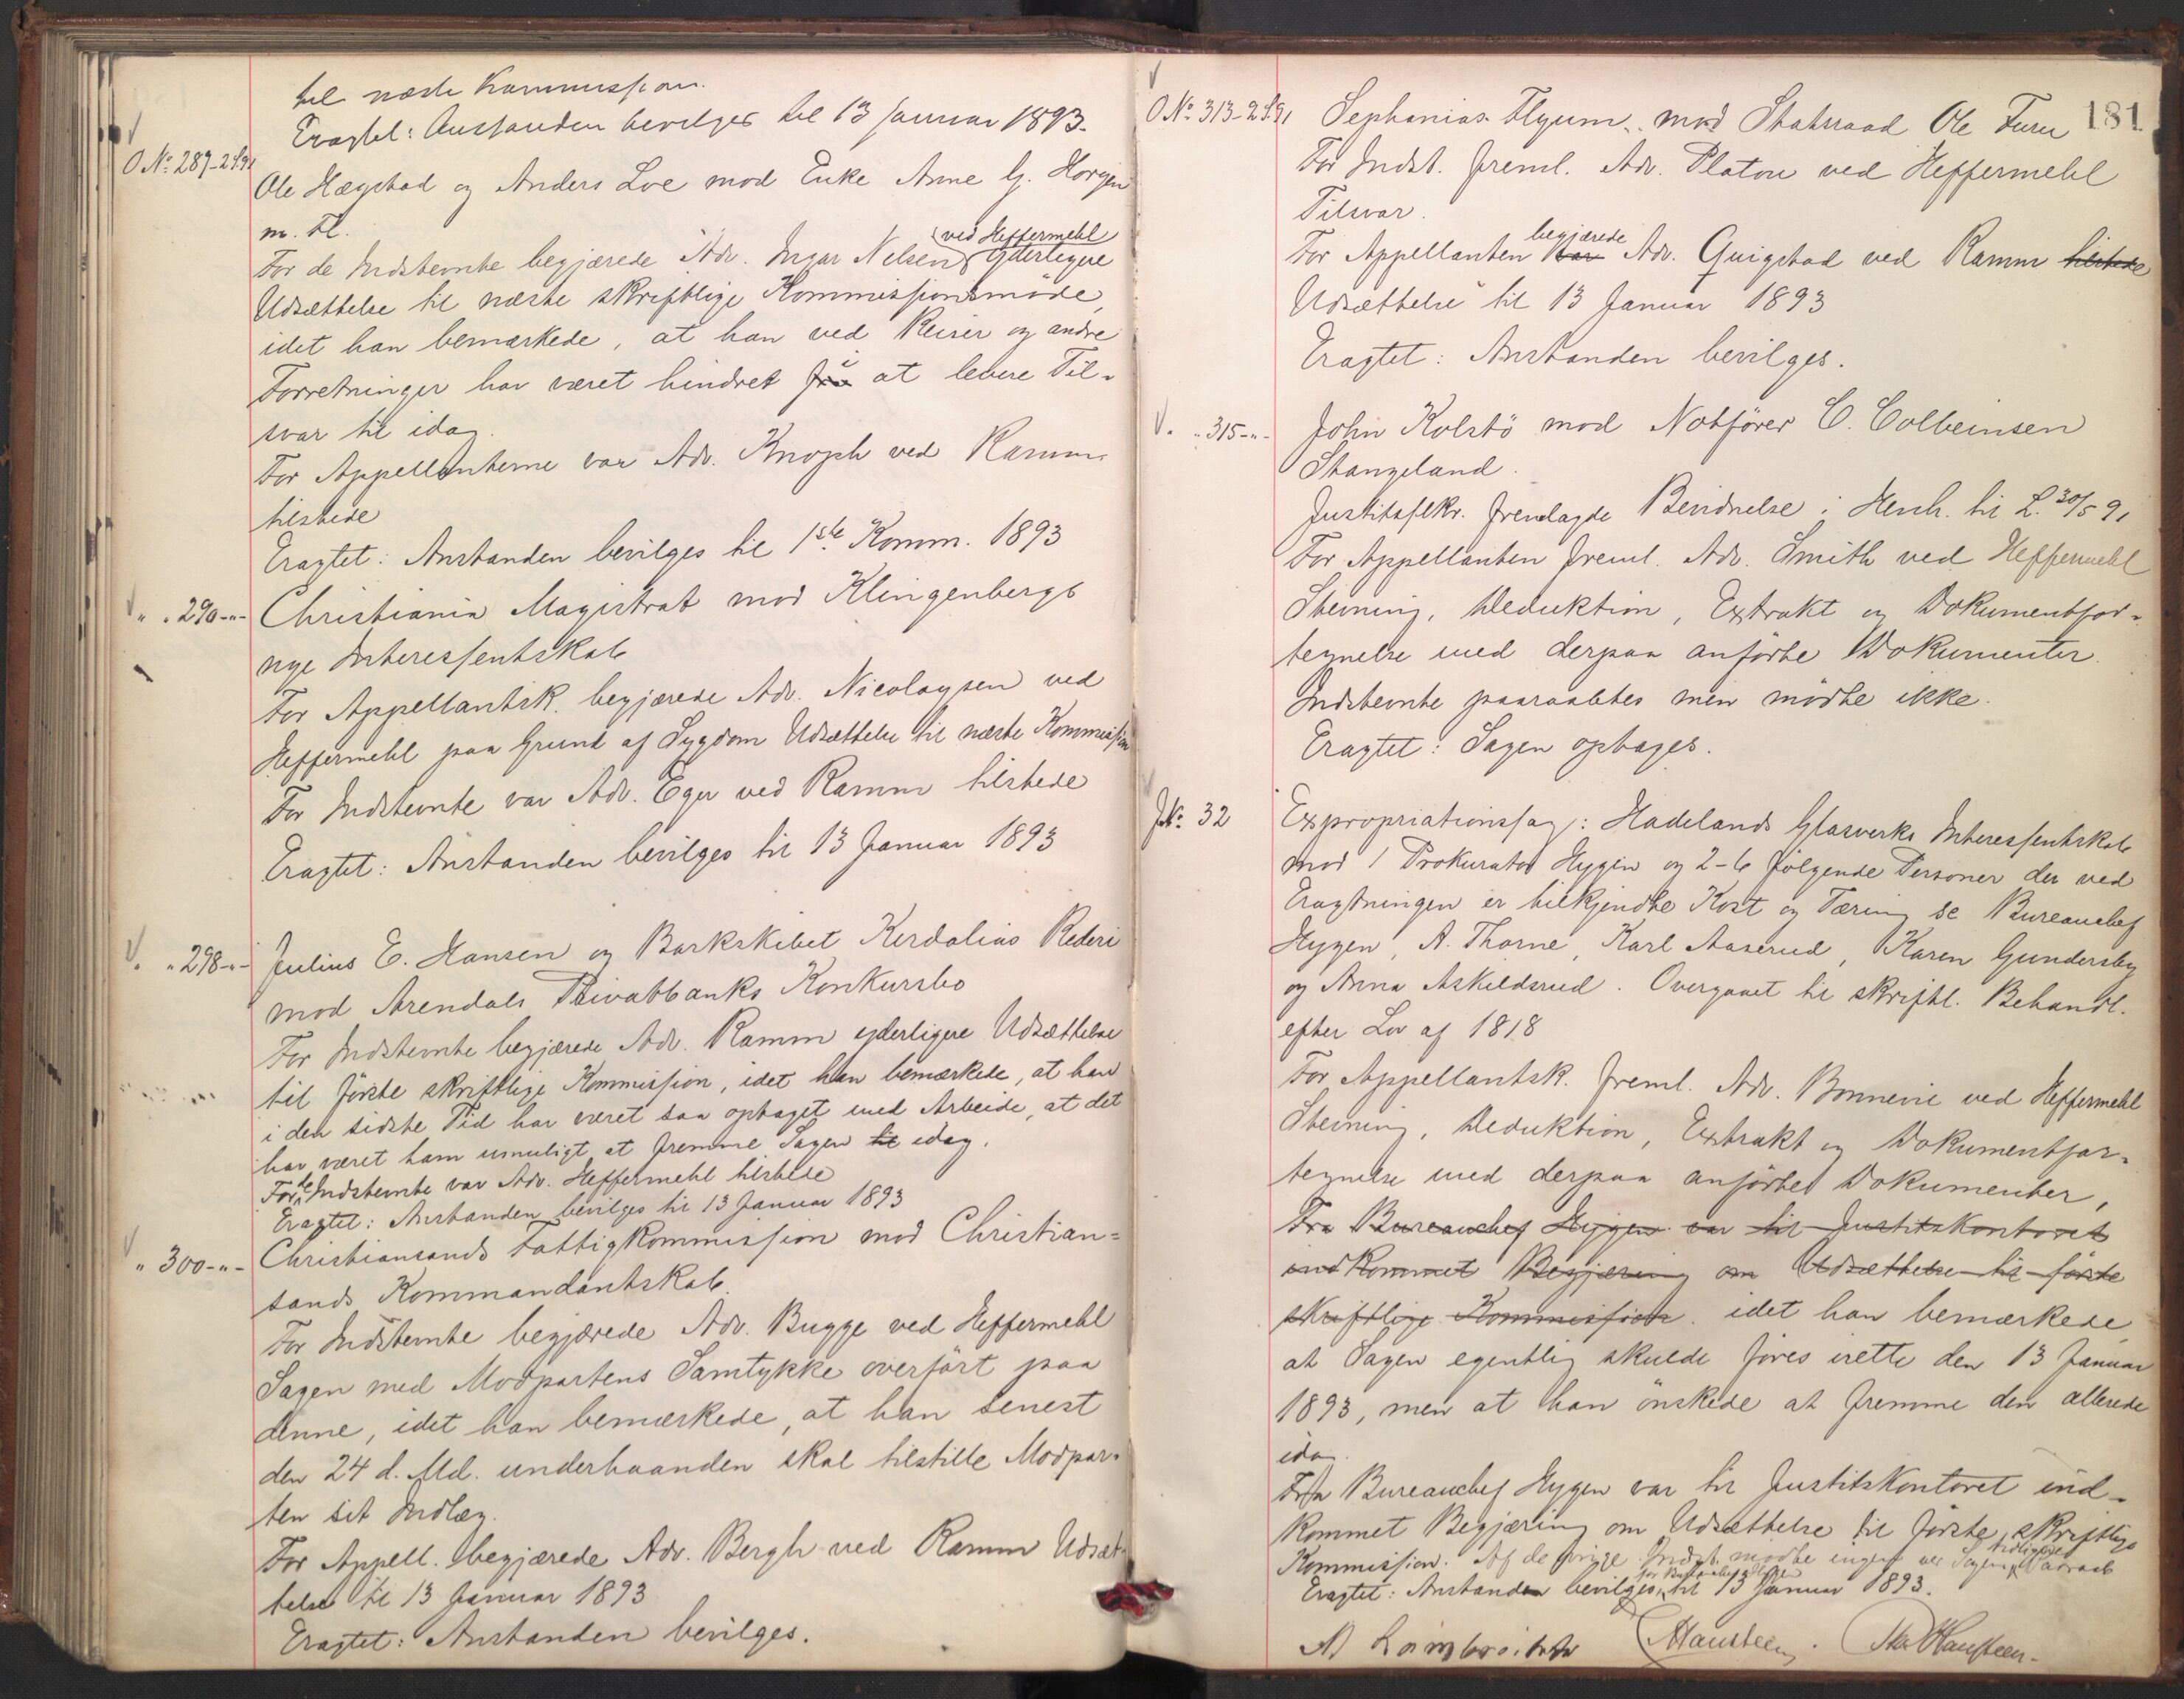 til næste Kommission.
Eragtet: Anstanden bevilges til 13 Januar 1893.
O No. 287-2S91
Ole Hægstad og Anders Loe mod Enke Anne G. Horgen
m. Fl.
For de Indstevnte begjærede Adv. Ingar Nelsen (ved Heffermehl) Yderligere
Udsættelse til næste skriftlige Kommissionsmøde,
idet han bemærkede, at han ved Reiser og andre
Forretninger har været hindret fra i at levere Til-
svar til idag.
For Appellanterne var Adv. Knoph ved Ramm
tilstede
Eragtet: Anstanden bevilges til 1ste Komm. 1893
" " 290-"-
Christiania Magistrat mod Klingenbergs
nye Interessentskab
For Appellantsk. begjærede Adv. Nicolaysen ved
Heffermehl paa Grund af Sygdom Udsættelse til næste Kommission
For Indstevnte var Adv. Eger ved Ramm tilstede
Eragtet: Anstanden bevilges til 13 Januar 1893
" 298-"-
Julius E. Hansen og Barkskibet Kerdalias Rederi
mod Arendals Privatbanks Konkursbo
For Indstevnte begjærede Adv. Ramm yderligere Udsættelse
til første skriftlige Kommission, idet han bemærkede, at han
i den sidste Tid har været saa optaget med Arbeide, at det
har været ham umuligt at fremme Sagen til idag.
For de Indstevnte var Adv. Heffermehl tilstede
Eragtet: Anstanden bevilges til 13 Januar 1893
" 300-"-
Christiansands Fattigkommission mod Christian-
sands Kommandantskab.
For Indstevnte begjærede Adv. Bugge ved Heffermehl
Sagen med Modpartens Samtykke overført paa
denne, idet han bemærkede, at han senest
den 24 d. Md. underhaanden skal tilstille Modpar-
ten sit Indlæg.
For Appell. begjærede Adv. Bergh ved Ramm Udsæt-
telse til 13 Januar 1893
Eragtet: Anstanden bevilges.
181
O No. 313-2S91
Sephanias Flyum mod Statsraad Ole Furu
For Indst. freml. Adv. Platou ved Heffermehl
Tilsvar.
For Appellanten var begjærede Adv. Quigstad ved Ramm tilstede
Udsættelse til 13 Januar 1893
Eragtet: Anstanden bevilges.
" 315-"-
John Kolstö mod Notfører C. Colbeinsen
Stangeland.
Justitssekr. fremlagde Bevidnelse i Henh. til L. 30/5 91
For Appellanten freml. Adv. Smith ved Heffermehl
Stevning, Deduktion, Extrakt og Dokumentfor-
tegnelse med derpaa anførte Dokumenter.
Indstevnte paaraabtes men mødte ikke.
Eragtet: Sagen optages.
J No. 32
Expropriationssag: Hadelands Glasverks Interessentskab
mod 1 Prokurator Hygen og 2-6 følgende Personer der ved
Eragtningen er tilkjendte Kost og Tæring se Bureauchef
Hygen, A. Thorne, Karl Aaserud, Karen Gundersby
og Anna Askildsrud. Overgaaet til skriftl. Behandl.
efter Lov af 1818
For Appellantsk. freml. Adv. Bonnevie ved Heffermehl
Stevning, Deduktion, Extrakt og Dokumentfor-
tegnelse med derpaa anførte Dokumenter,
Fra Bureauchef Hygen var til Justitskontoret
indkommet Begjæring om Udsættelse til første
skriftlige Kommission. idet han bemærkede,
at Sagen egentlig skulde føres irette den 13 Januar
1893, men at han ønskede at fremme den allerede
idag.
Fra Bureauchef Hygen var til Justitskontoret ind-
kommet Begjæring om Udsættelse til første skriftlige
Kommission. Af de øvrige Indst. mødte ingen ved Sagens tidligere Paaraab
Eragtet: Anstanden bevilges for Bureauchef Hygen til 13 Januar 1893.
Hansteen. Hansteen.